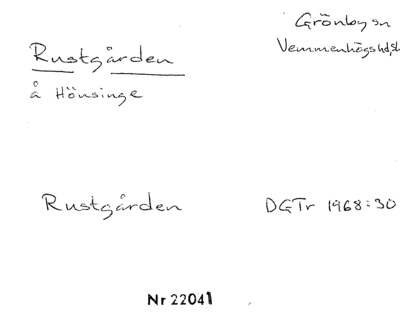 Grönby sn
Vemmenhögs hd, sk
Rustgården
å Hönsinge
Rustgården
DGTr 1968:30
Nr 22041